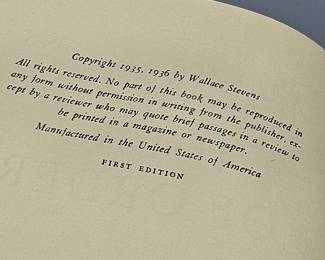 Copyright 1935, 1936 by Wallace Stevens
All rights reserved. No part of this book may be reproduced in
any form without permission in writing from the publisher, ex-
cept by a reviewer who may quote brief passages in a review to
be printed in a magazine or newspaper.
Manufactured in the United States of America
FIRST EDITION